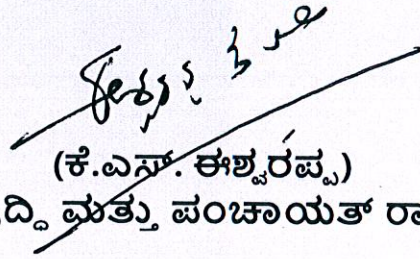 (ಕೆ.ಎಸ್. ಈಶ್ವರಪ್ಪ)
ದ್ಧಿ ಮತ್ತು ಪಂಚಾಯತ್ ರಾ